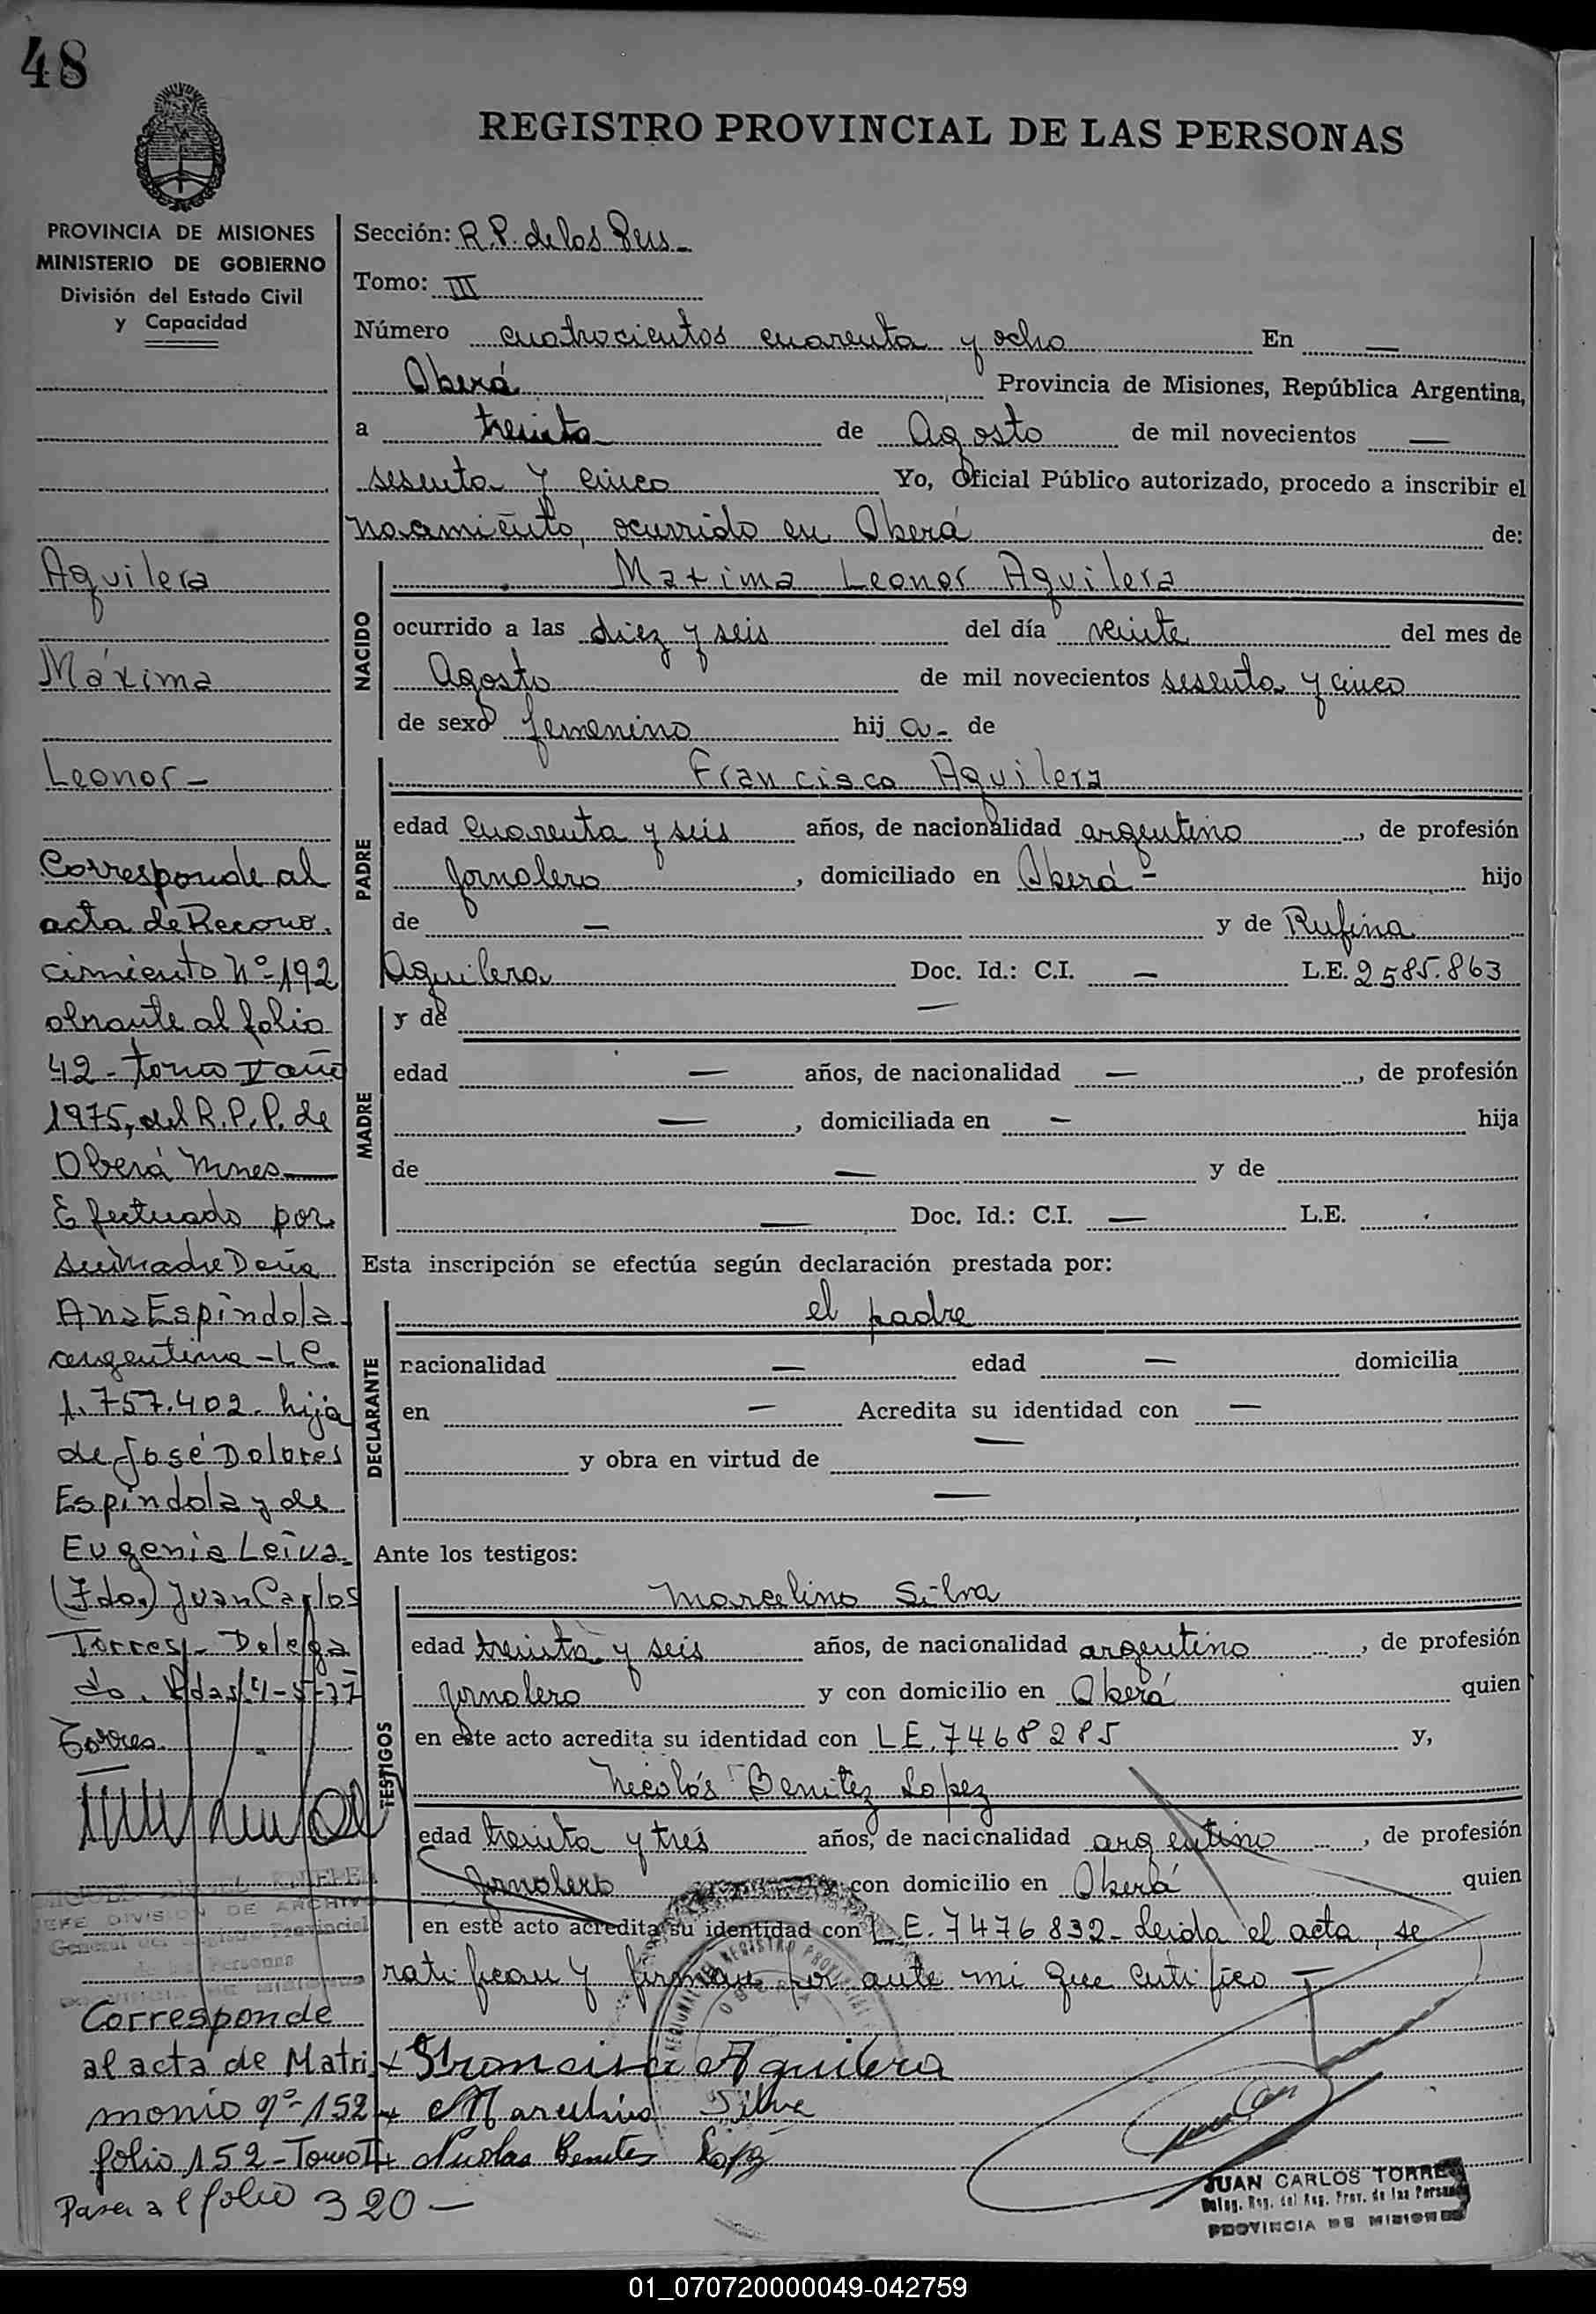 48
REGISTRO PROVINCIAL DE LAS PERSONAS
PROVINCIA DE MISIONES
MINISTERIO DE GOBIERNO
División del Estado Civil
y Capacidad
Aguilera
Máxima
Leonor -
Corresponde al
acta de Recono.
cimiento Nº 192
obrante al folio
42 - tomo V año
1975, del R.P.P. de
Oberá Mnes
Efectuado por
su madre Doña
Ana Espíndola
argentina - L.C.
1.757.402 - hija
de José Dolores
Espíndola y de
Eugenia Leiva.
(Fdo.) Juan Carlos
Torres - Delega
do. Pdas. 4-5-77
Torres.
JEFE DIVISION DE ARCHIVO
General del Registro Provincial
de las Personas
Corresponde
al acta de Matri
monio nº 152
folio 152 - Tomo I
Pasa al folio 320 -
Sección: R.P. de los Pers -
Tomo: III
Número cuatrocientos cuarenta y ocho En —
Oberá Provincia de Misiones, República Argentina,
a treinta de Agosto de mil novecientos —
sesenta y cinco Yo, Oficial Público autorizado, procedo a inscribir el
nacimiento, ocurrido en Oberá de:
NACIDO
Maxima Leonor Aguilera
ocurrido a las diez y seis del día veinte del mes de
Agosto de mil novecientos sesenta y cinco
de sexo femenino hij a - de
PADRE
Francisco Aguilera
edad cuarenta y seis años, de nacionalidad argentino, de profesión
Jornalero, domiciliado en Oberá - hijo
de — y de Rufina
Aguilera Doc. Id.: C.I. — L.E. 2585.863
MADRE
y de —
edad — años, de nacionalidad —, de profesión
—, domiciliada en — hija
de — y de
— Doc. Id.: C.I. — L.E.
Esta inscripción se efectúa según declaración prestada por:
DECLARANTE
el padre
nacionalidad — edad — domicilia
en — Acredita su identidad con —
y obra en virtud de —
—
Ante los testigos:
TESTIGOS
Marcelino Silva
edad treinta y seis años, de nacionalidad argentino, de profesión
Jornalero y con domicilio en Oberá quien
en este acto acredita su identidad con L E. 7468285 y,
Nicolás Benitez Lopez
edad treinta y tres años, de nacionalidad argentino, de profesión
Jornalero y con domicilio en Oberá quien
en este acto acredita su identidad con L E. 7476832 - Leida el acta, se
ratifican y firman por ante mi que certifico —
Francisco Aguilera
Marcelino Silva
Nicolas Benites Lopez
JUAN CARLOS TORRES
Deleg. Reg. del Reg. Prov. de las Personas
PROVINCIA DE MISIONES
01_070720000049-042759